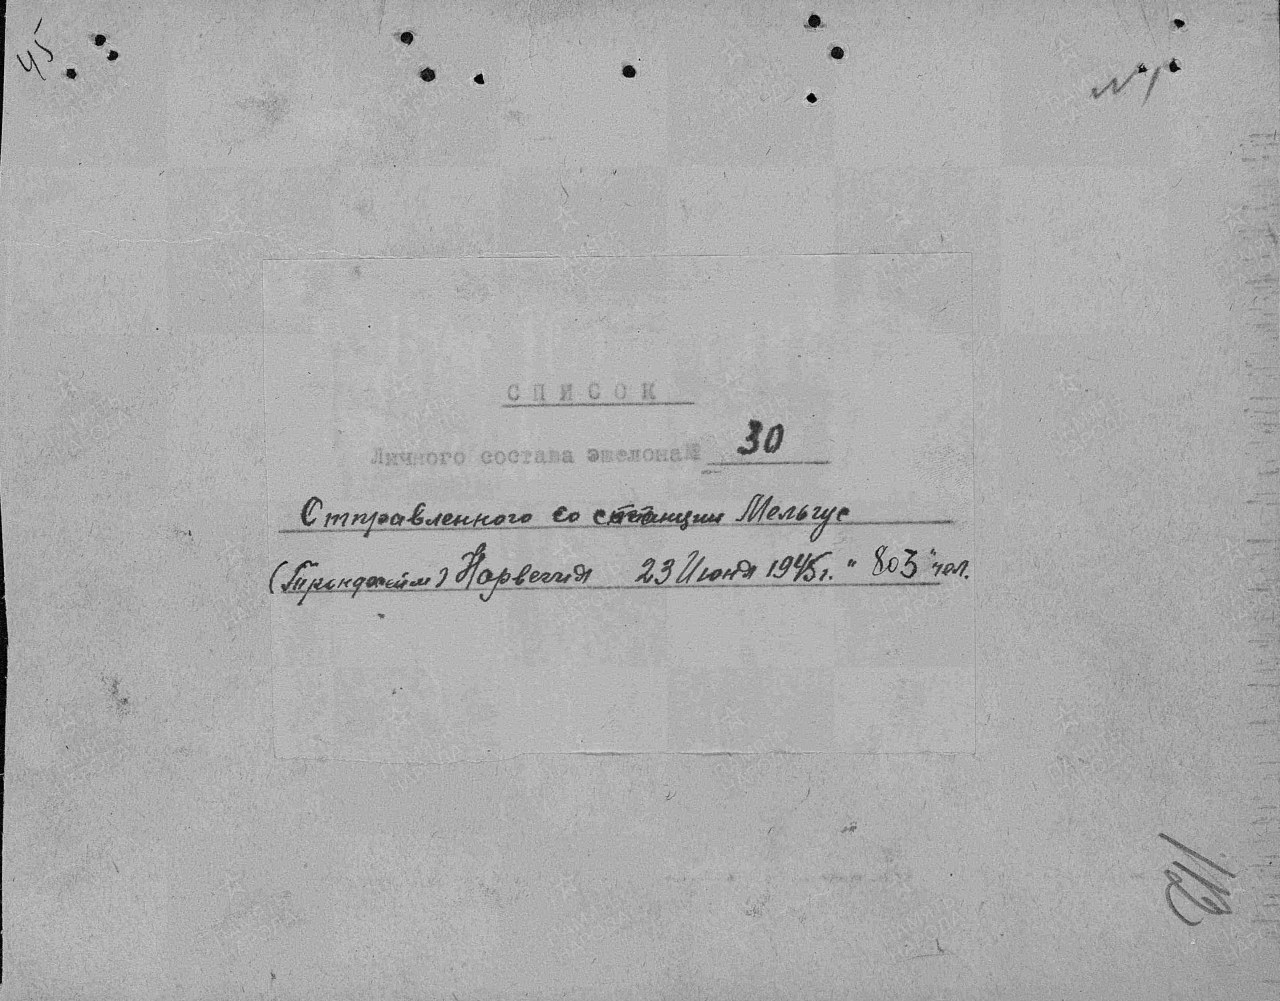 45
N 1
СПИСОК
Личного состава эшелона№ 30
Отправленного со станции Мельгус
(Трондгейм) Норвегия 23 Июня 1945г. "803" чел.